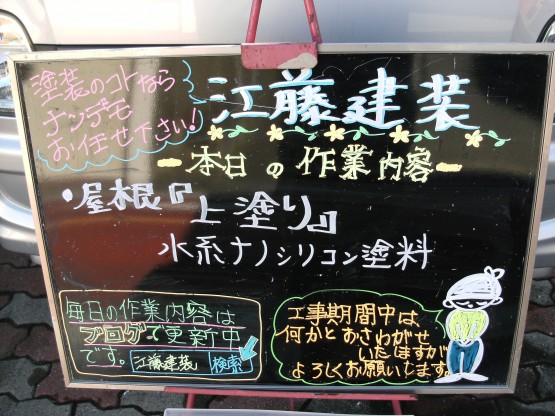 塗装のコトなら
ナンデモ
お任せ下さい!
江藤建装
本日の作業内容
・屋根『上塗り』
水系ナノシリコン塗料
毎日の作業内容は
ブログで更新中
です。 江藤建装 検索
工事期間中は
何かとおさわがせ
いたしますが
よろしくお願いします。